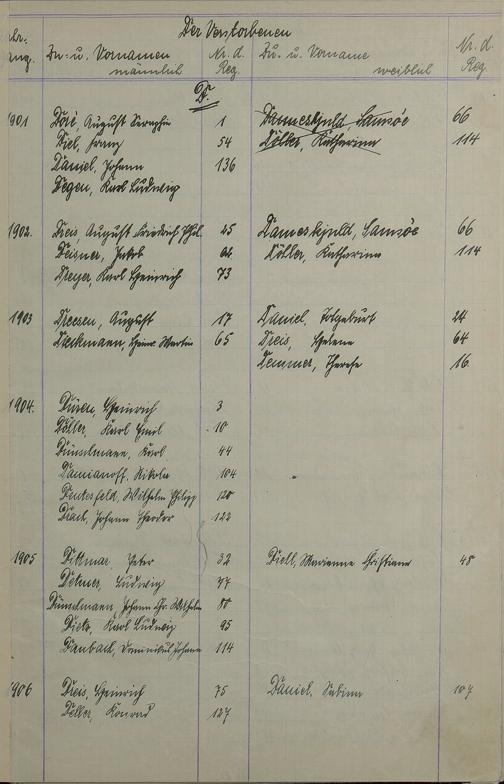 Der Verstorbenen
Zu- u. Vornamen männlich Nr. d. Reg. Zu- u. Vorname weiblich Nr. d. Reg.
D.
1901 Doré, August Seraphin 1 Danneskjold, Samsöe 66
Diel, Franz 54 Döller, Katharina 114
Daniel, Johann 136
Degen, Karl Ludwig
1902. Dreis, August Friedrich 25 Danneskjold, Samsöe 66
Deisner, Jakob Döller, Katharina 114
Dreyer, Karl Heinrich 73
1903 Dreesen, August 17 Daniel, Totgeburt 24
Diekmann, Heinr. Martin 65 Dreis, Helene 64
Demmer, Therese 16
1904. Düren, Heinrich 3
Döller, Karl Emil 10
Dünselmann, Karl 44
Damianoff, Nikola 104
Wilhelm Philipp 120
Johann Theodor 122
1905 Dittmar, Peter 32 Diell, Marianne Christiane 48
Detmer, Ludwig 77
Dünselmann, Johann Chr. Wilhelm 80
Dietz, Karl Ludwig 95
Danbach, Dominikus Johann 114
1906 Dreis, Heinrich 75 Daniel, Sabina 107
Deller, Konrad 127